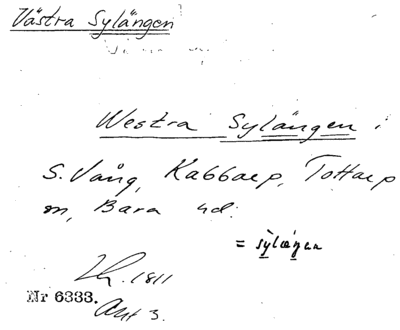 Västra Sylängen
Westra Sylängen i
S. Vång, Kabbarp, Tottarp
m, Bara hd.
= sylæŋen
1811
Nr 6333.
Akt 3.